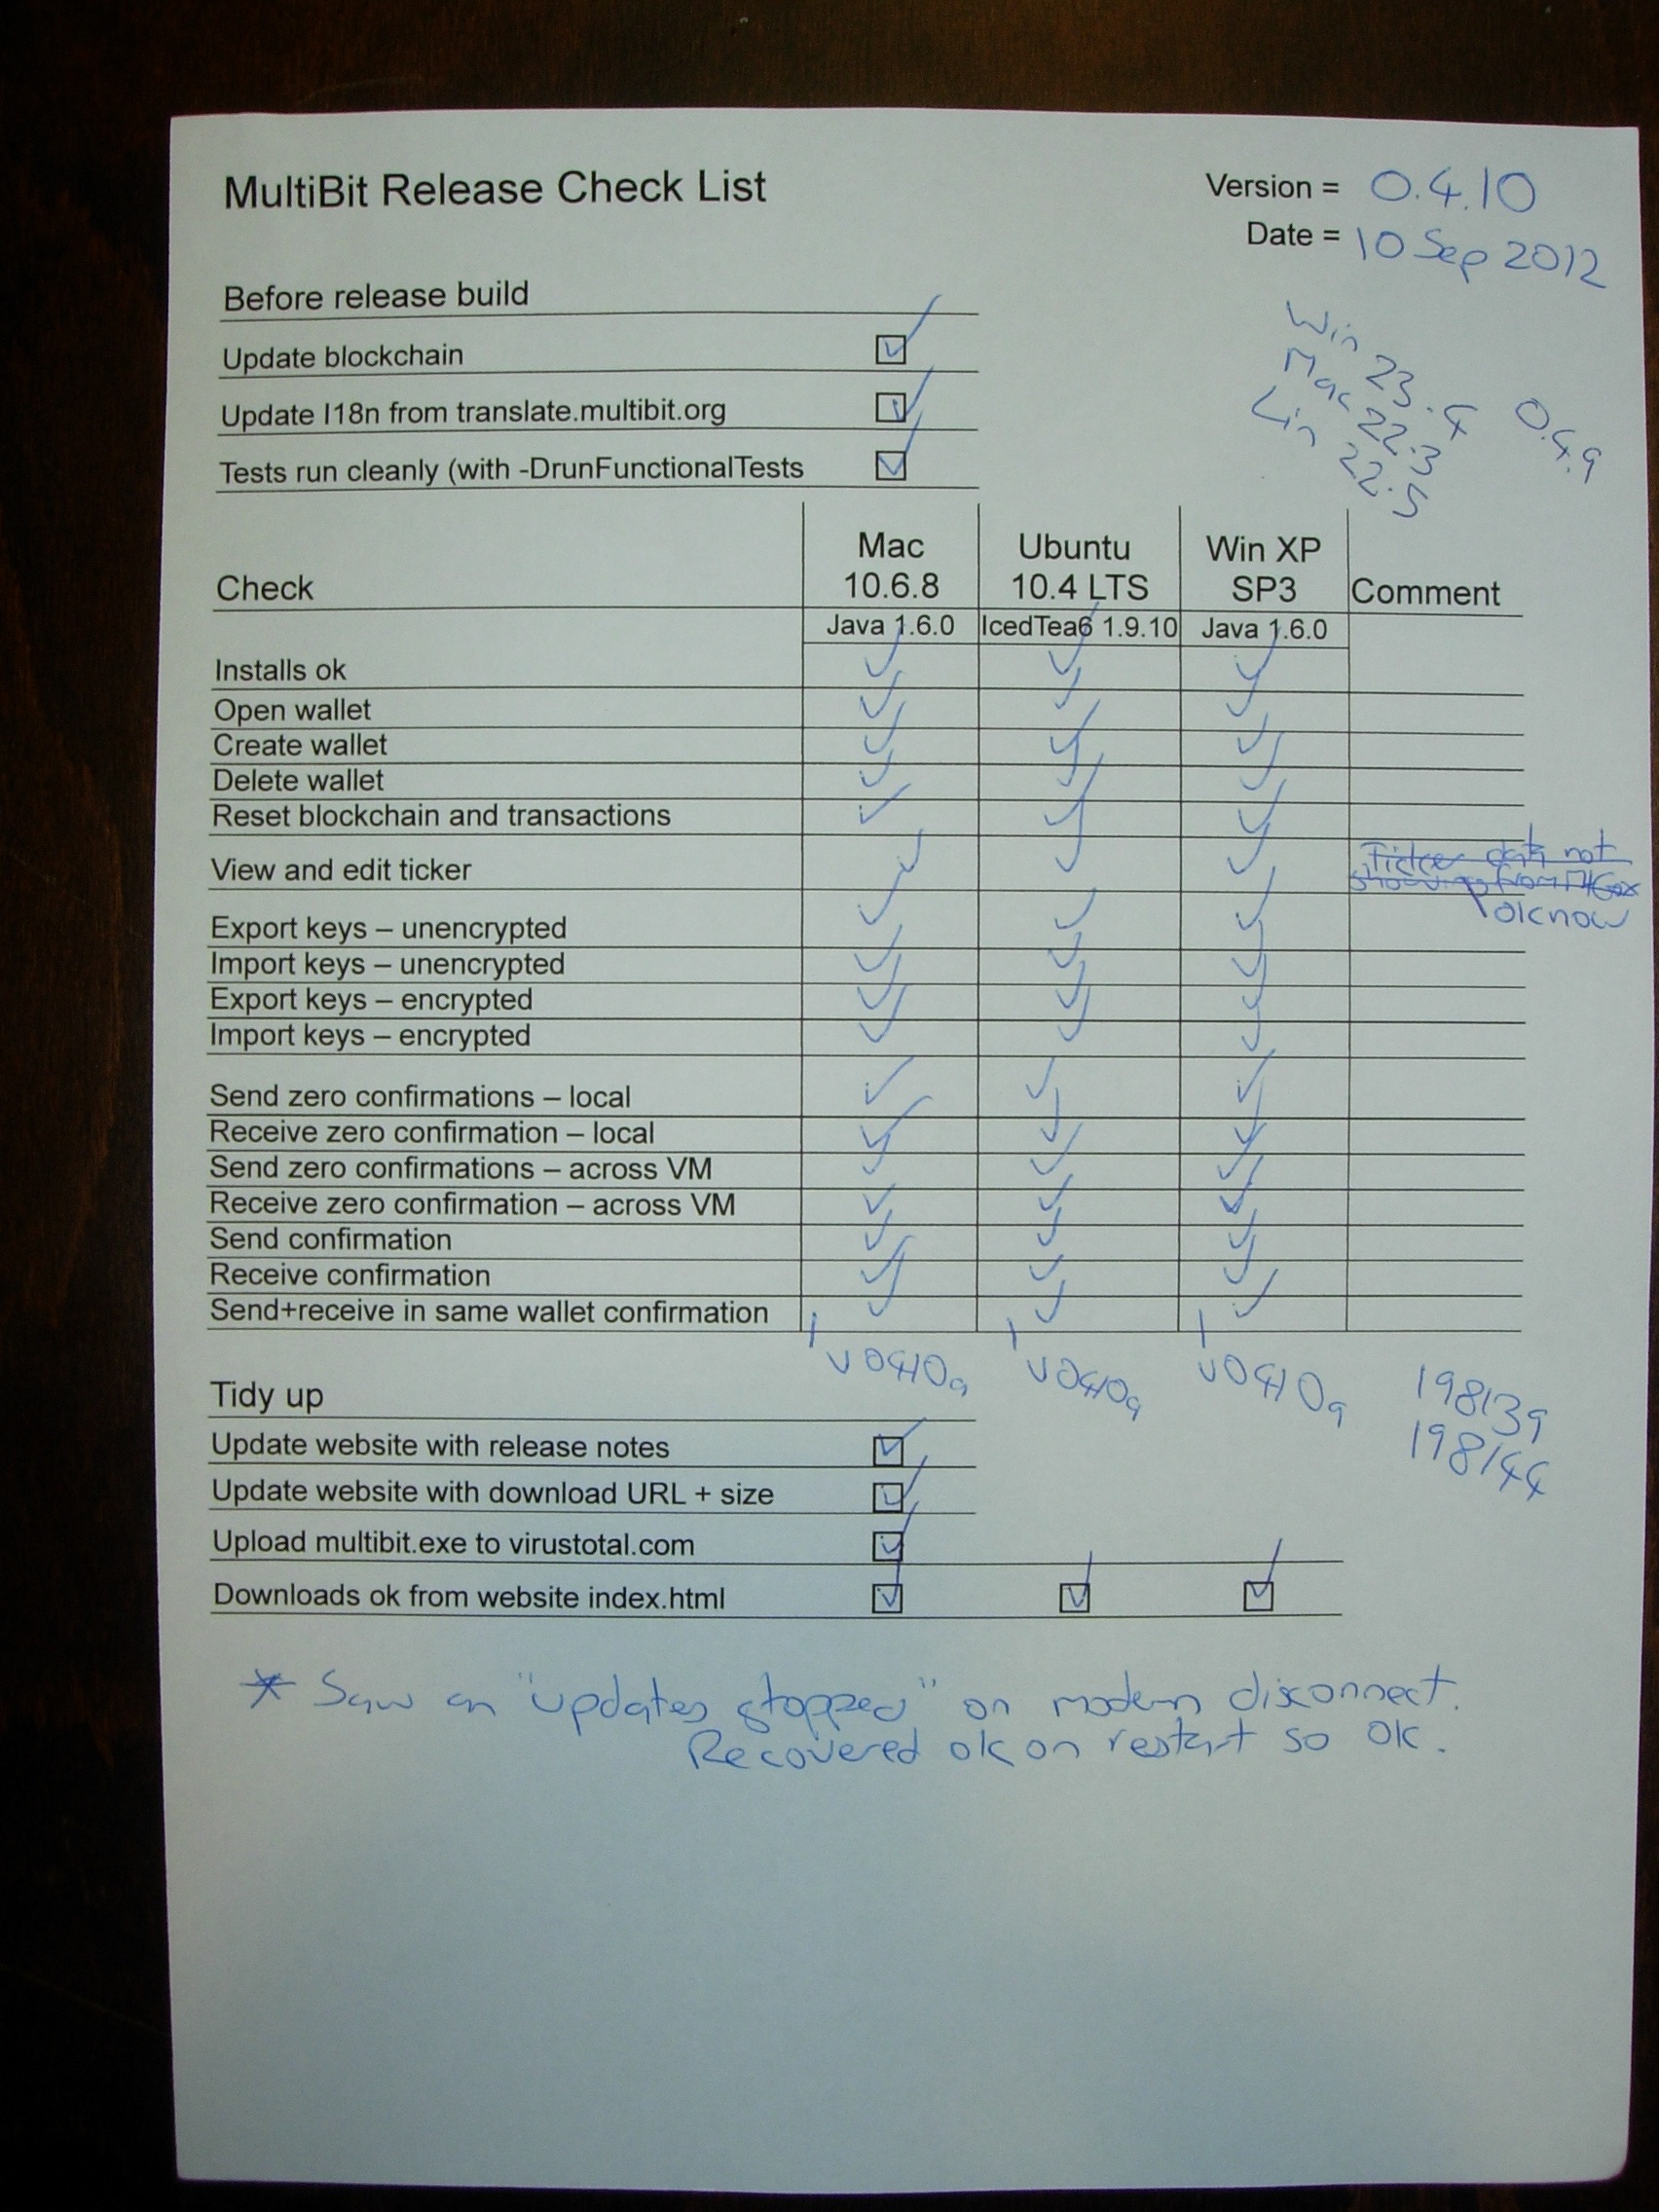 MultiBit Release Check List
Version = 0.4.10
Date = 10 Sep 2012
Before release build
Update blockchain
Update I18n from translate.multibit.org
Tests run cleanly (with -DrunFunctionalTests
Win 23.4
Mac 22.3
Lin 22.5
0.4.9
Check
Mac 10.6.8
Ubuntu 10.4 LTS
Win XP SP3
Comment
Java 1.6.0
IcedTea6 1.9.10
Java 1.6.0
Installs ok
Open wallet
Create wallet
Delete wallet
Reset blockchain and transactions
View and edit ticker
Ticker data not
showing from MtGox
ok now
Export keys – unencrypted
Import keys – unencrypted
Export keys – encrypted
Import keys – encrypted
Send zero confirmations – local
Receive zero confirmation – local
Send zero confirmations – across VM
Receive zero confirmation – across VM
Send confirmation
Receive confirmation
Send+receive in same wallet confirmation
v0410a v0410a v0410a
198139
198144
Tidy up
Update website with release notes
Update website with download URL + size
Upload multibit.exe to virustotal.com
Downloads ok from website index.html
* Saw an "updates stopped" on modem disconnect.
Recovered ok on restart so OK.